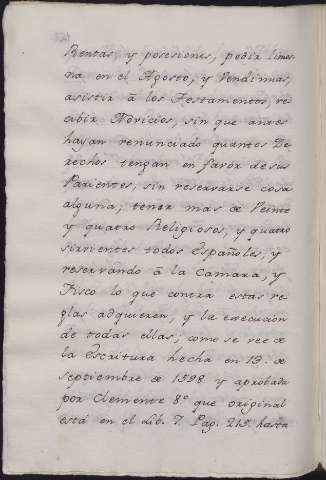 Rentas, y posesiones, pedir limos
na en el Agosto, y Vendimias,
asistir â los Testamentos, re
cibir Novicios, sin que antes
hayan renunciado quantos De
rechos tengan en favor de sus
Parientes, sin reservarse cosa
alguna; tener mas de Veinte
y quatro Religiosos, y quatro
sirvientes todos Españoles, y
reservando â la Camara, y
Fisco lo que contra estas re
glas adquieren, y la execucion
de todas ellas; como se vee de
la Escritura hecha en 13. de
septiembre de 1598. y aprobada
por Clemente 8º que original
està en el Lib. 7. Pag. 215. hasta